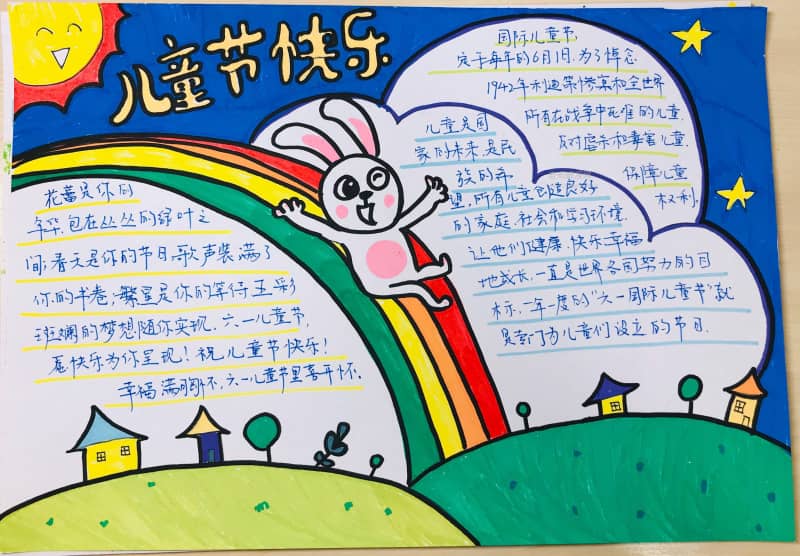 儿童节快乐
花蕾是你的
年华,包在丛丛的绿叶之
间;春天是你的节日,歌声装满了
你的书卷;繁星是你的等待,五彩
斑斓的梦想随你实现.六一儿童节,
愿快乐为你呈现!祝儿童节快乐!
幸福满胸怀.六一儿童节里喜开怀.
国际儿童节,
定于每年的6月1日.为了悼念
1942年利迪策惨案和全世界
所有在战争中死难的儿童.
反对虐杀和毒害儿童.
保障儿童
权利.
儿童是国
家的未来,是民
族的希
望,所有儿童创造良好
的家庭.社会和学习环境.
让他们健康.快乐.幸福
地成长,一直是世界各国努力的目
标,一年一度的"六一国际儿童节"就
是专门为儿童们设立的节日.